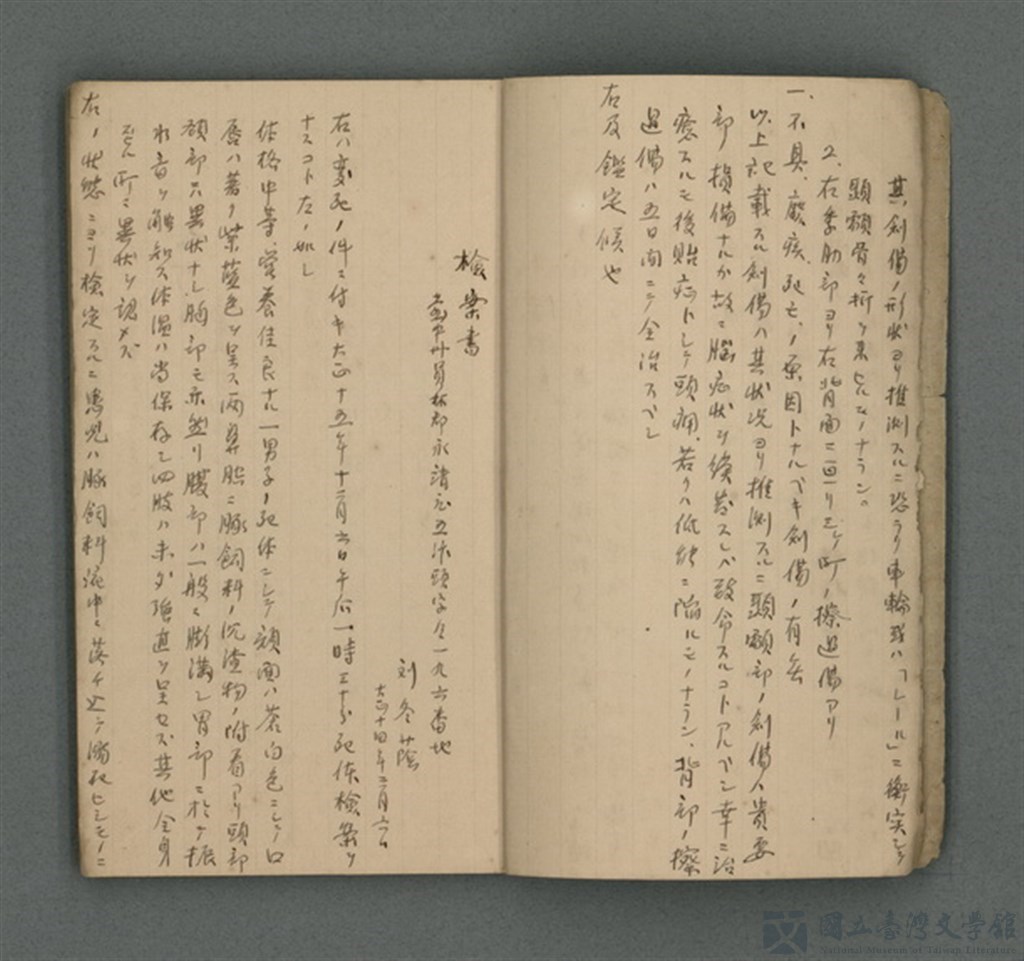 其ノ創傷ノ形状ヨリ推測スルニ恐ラク車輪或ハ「レール」ニ衝突シテ
顳顬骨々折ヲ来セルモノナラン。
2. 右季肋部ヨリ右背面ニ亘リ三ケ所ノ擦過傷アリ
一、不具、癈疾、死亡、ノ原因トナルベキ創傷ノ有無
以上記載スル創傷ハ其状况ヨリ推測スルニ顳顬部ノ創傷ハ貴要
部損傷ナルカ故ニ脳症状ヲ続発スレバ致命スルコトアルベシ幸ニ治
癒スルモ後貽症トシテ頭痛、若クハ低能ニ陥ルモノナラン、背部ノ擦
過傷ハ五日間ニテ全治スベシ
右及鑑定候也
検案書
台中州員林郡永靖庄五汴頭字 一九六番地
刘冬蔭
大正十四年二月六日
右ハ変死ノ件ニ付キ大正十五年十二月六日午后一時三十分死体検案ヲ
ナスコト左ノ如シ
体格中等、栄養佳良ナル一男子ノ死体ニシテ顔面ハ蒼白色ニシテ口
唇ハ著ク紫藍色ヲ呈ス両鼻腔ニ豚飼料ノ沉渣物ノ附着アリ頭部
頚部ハ異状ナシ胸部モ亦然リ腹部ハ一般ニ膨満シ胃部ニ於テ振
水音ヲ触知ス体温ハ尚保存シ四肢ハ未ダ強直ヲ呈セズ其他全身
ニ異状ヲ認メズ
右ノ状態ニヨリ検定スルニ患児ハ豚飼料流中ニ落チ込テ溺死セシモノニ
國立臺灣文學館
National Museum of Taiwan Literature